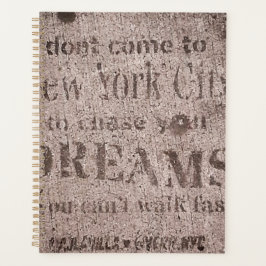 dont come to
New York City
to chase your
DREAMS
you can't walk fas